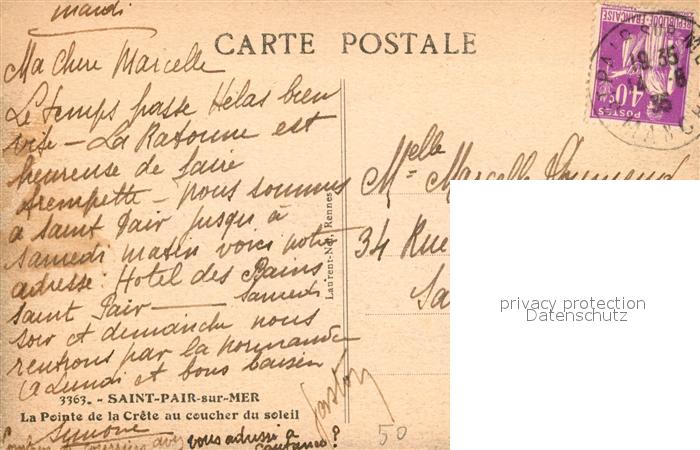 mardi
CARTE POSTALE
Ma chere Marcelle
Le temps passe Hélas bien
vite - La Ratoune est
heureuse de faire
trempette - nous sommes
à Saint Pair jusqu'à
samedi matin voici notre
adresse: Hotel des Bains
Saint Pair — Samedi
soir et dimanche nous
rentrons par la normandie
A Lundi et bons baisers
Gaston
Simone
3363. - SAINT-PAIR-sur-MER
La Pointe de la Crête au coucher du soleil
vous adressé à
Coutances?
Laurent-Nel, Rennes
Melle Marcelle
34 Rue
Sa
REPUBLIQUE FRANÇAISE
POSTES
40c
19 35
35
MANCHE
50
privacy protection
Datenschutz